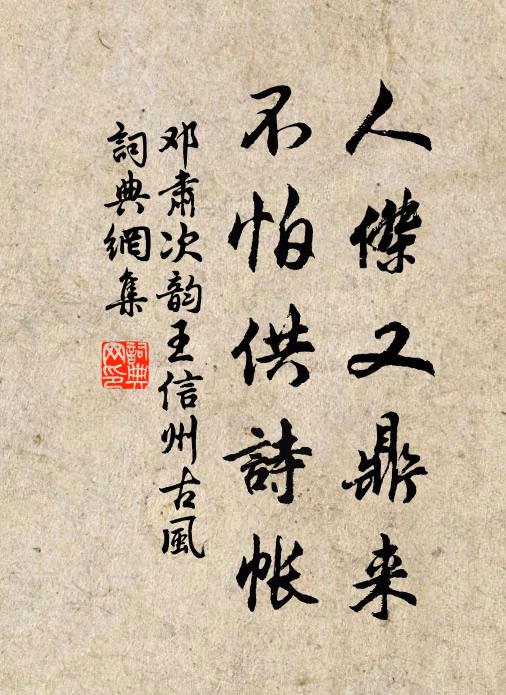 人傑又鼎来
不怕供詩帐
邓肅次韵王信州古風
詞典網集
詞典网印